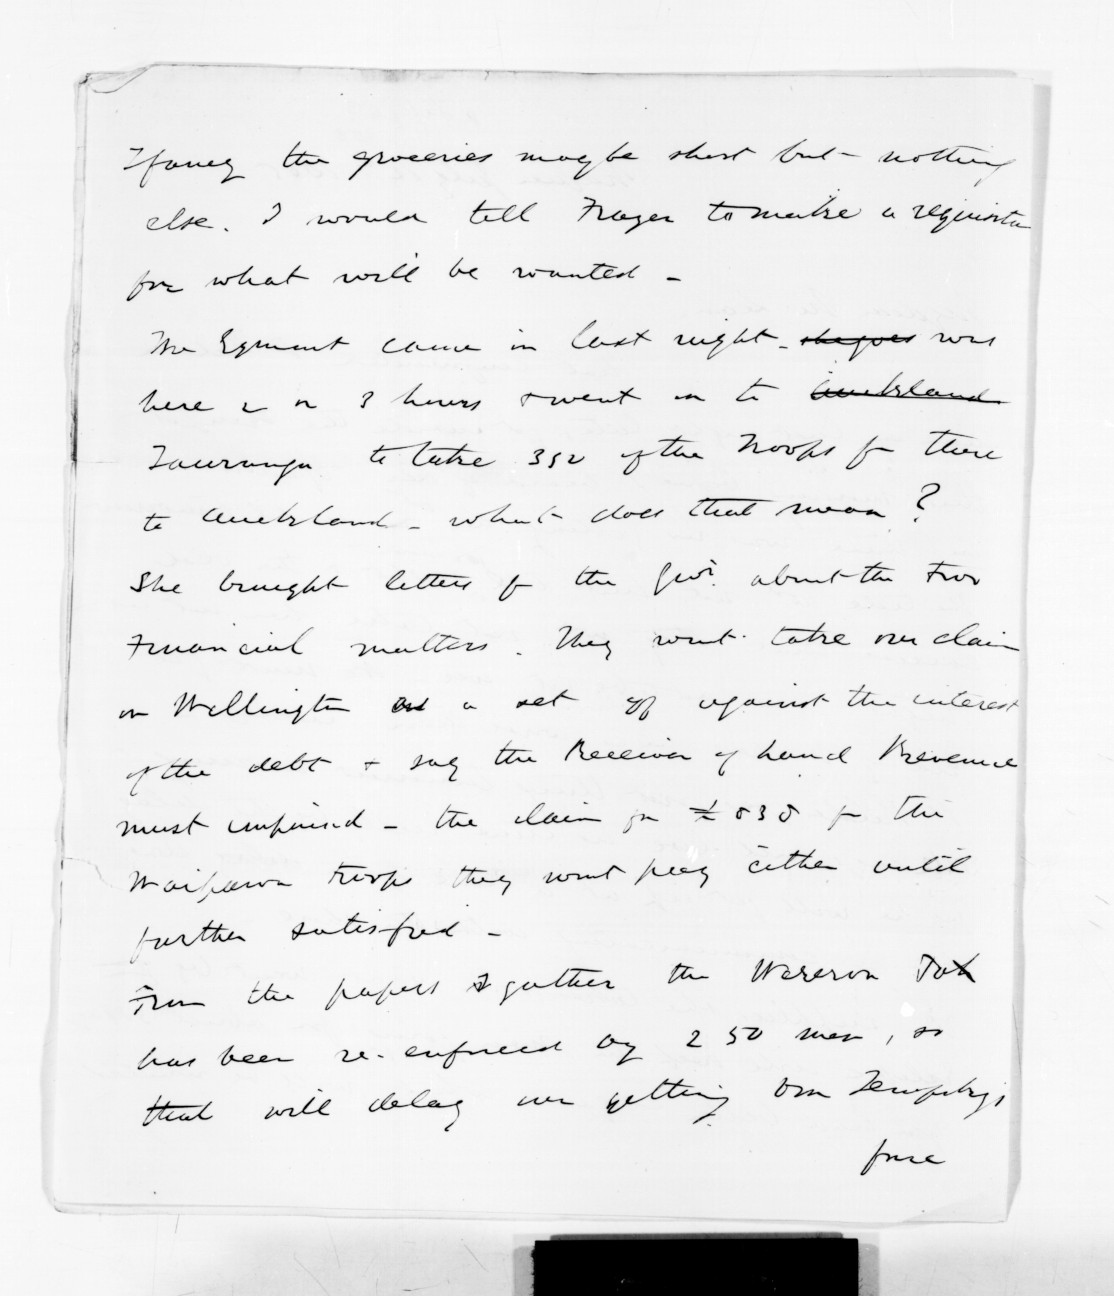 I fancy the groceries may be short but nothing
else. I would tell Frazer to make a requisitn
for what will be wanted -
The Egmont came in last night - she goes was
here 2 or 3 hours & went on to Auckland
Tauranga to take 350 of the Troops fm there
to Auckland - what does that mean?
She brought letters fm the Govt. about the two
Financial matters. They wont take our claim
on Wellington as a set off against the interest
of the debt & say the Receiver of Land Revenue
must impound - the claim for £ 838 for the
Waipawa troops they wont pay either until
further satisfied -
From the papers I gather the Wereroa Pah
has been re-enforced by 250 men, so
that will delay our getting Von Tempsky's
force